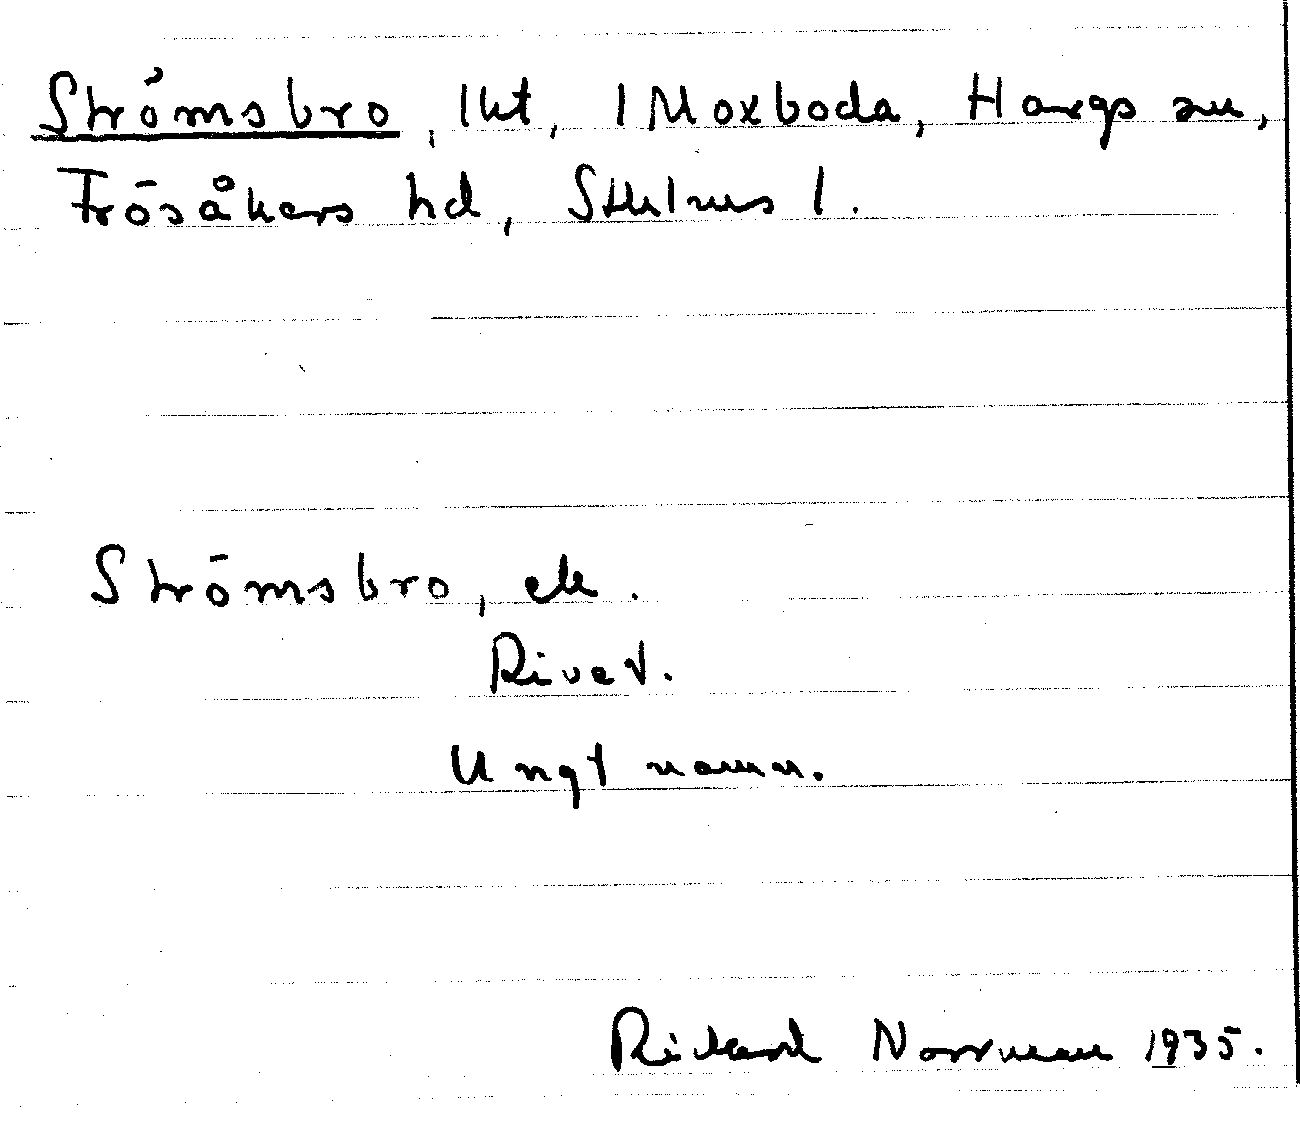 Strömsbro, lht, i Moxboda, Hargs sn,
Frösåkers hd, Sthlms l.
Strömsbro, ek.
Rivet.
Ungt namn.
Rickard Norrman 1935.